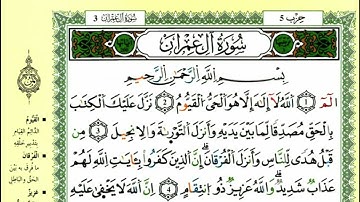 حزب 5
سورة آل عمران 3
سُورَةُ آلِ عِمْرَان
بِسْمِ اللَّهِ الرَّحْمَٰنِ الرَّحِيمِ
الٓمٓ ﴿1﴾ اللَّهُ لَا إِلَٰهَ إِلَّا هُوَ الْحَيُّ الْقَيُّومُ ﴿2﴾ نَزَّلَ عَلَيْكَ الْكِتَٰبَ
بِالْحَقِّ مُصَدِّقًا لِّمَا بَيْنَ يَدَيْهِ وَأَنزَلَ التَّوْرَىٰةَ وَالْإِنجِيلَ ﴿3﴾ مِن
قَبْلُ هُدًى لِّلنَّاسِ وَأَنزَلَ الْفُرْقَانَ إِنَّ الَّذِينَ كَفَرُوا بِـَٔايَٰتِ اللَّهِ لَهُمْ
عَذَابٌ شَدِيدٌ وَاللَّهُ عَزِيزٌ ذُو انتِقَامٍ ﴿4﴾ إِنَّ اللَّهَ لَا يَخْفَىٰ عَلَيْهِ
القَيُّومُ
الدائم القيام
بتدبير خلقه
الفُرْقَانَ
ما فرق به بين
الحق والباطل
عَزِيزٌ